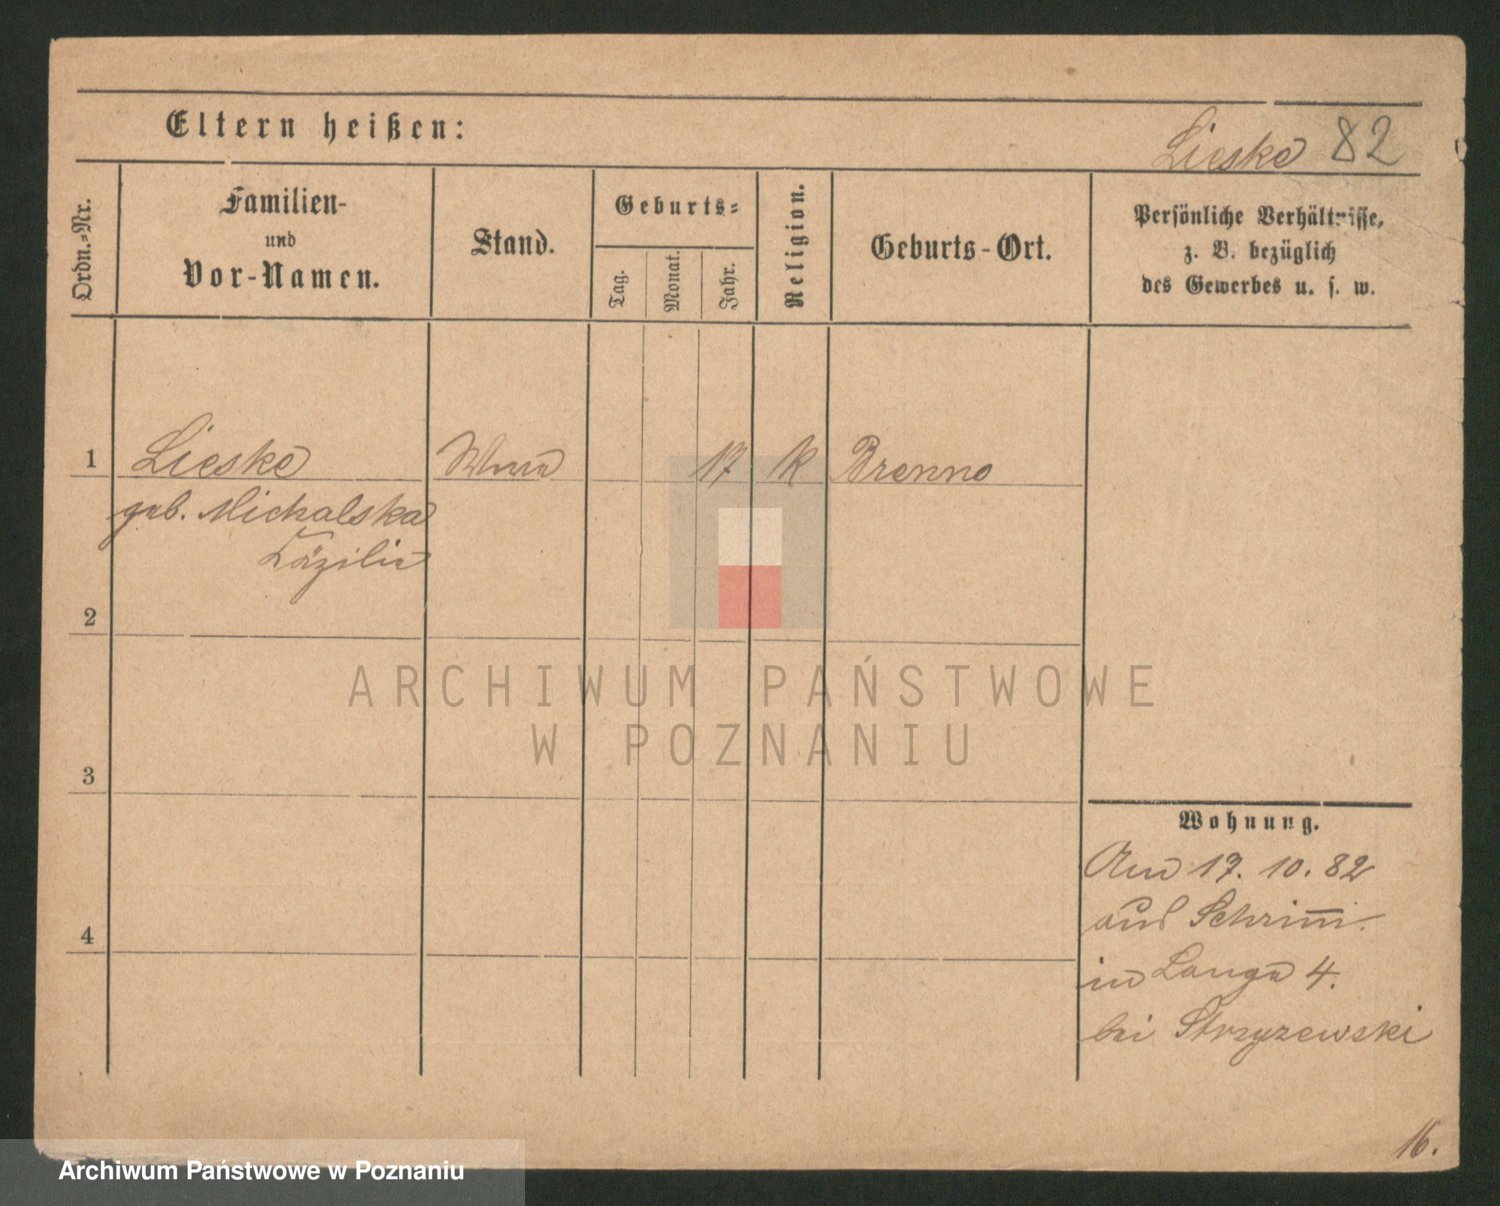 Eltern heißen:
Lieske 82
Ordn.=Nr.
Familien-
und
Vor-Namen.
Stand.
Geburts=
Tag.
Monat.
Jahr.
Religion.
Geburts-Ort.
Persönliche Verhältnisse,
z. B. bezüglich
des Gewerbes u. s. w.
1 Lieske 17 k Brenno
geb. Michalska
Cäzilie
2
3
4
Wohnung.
Am 17. 10. 82
aus Schrim̅.
in Lange 4.
bei Strzyzewski
16.
ARCHIWUM PAŃSTWOWE
W POZNANIU
Archiwum Państwowe w Poznaniu